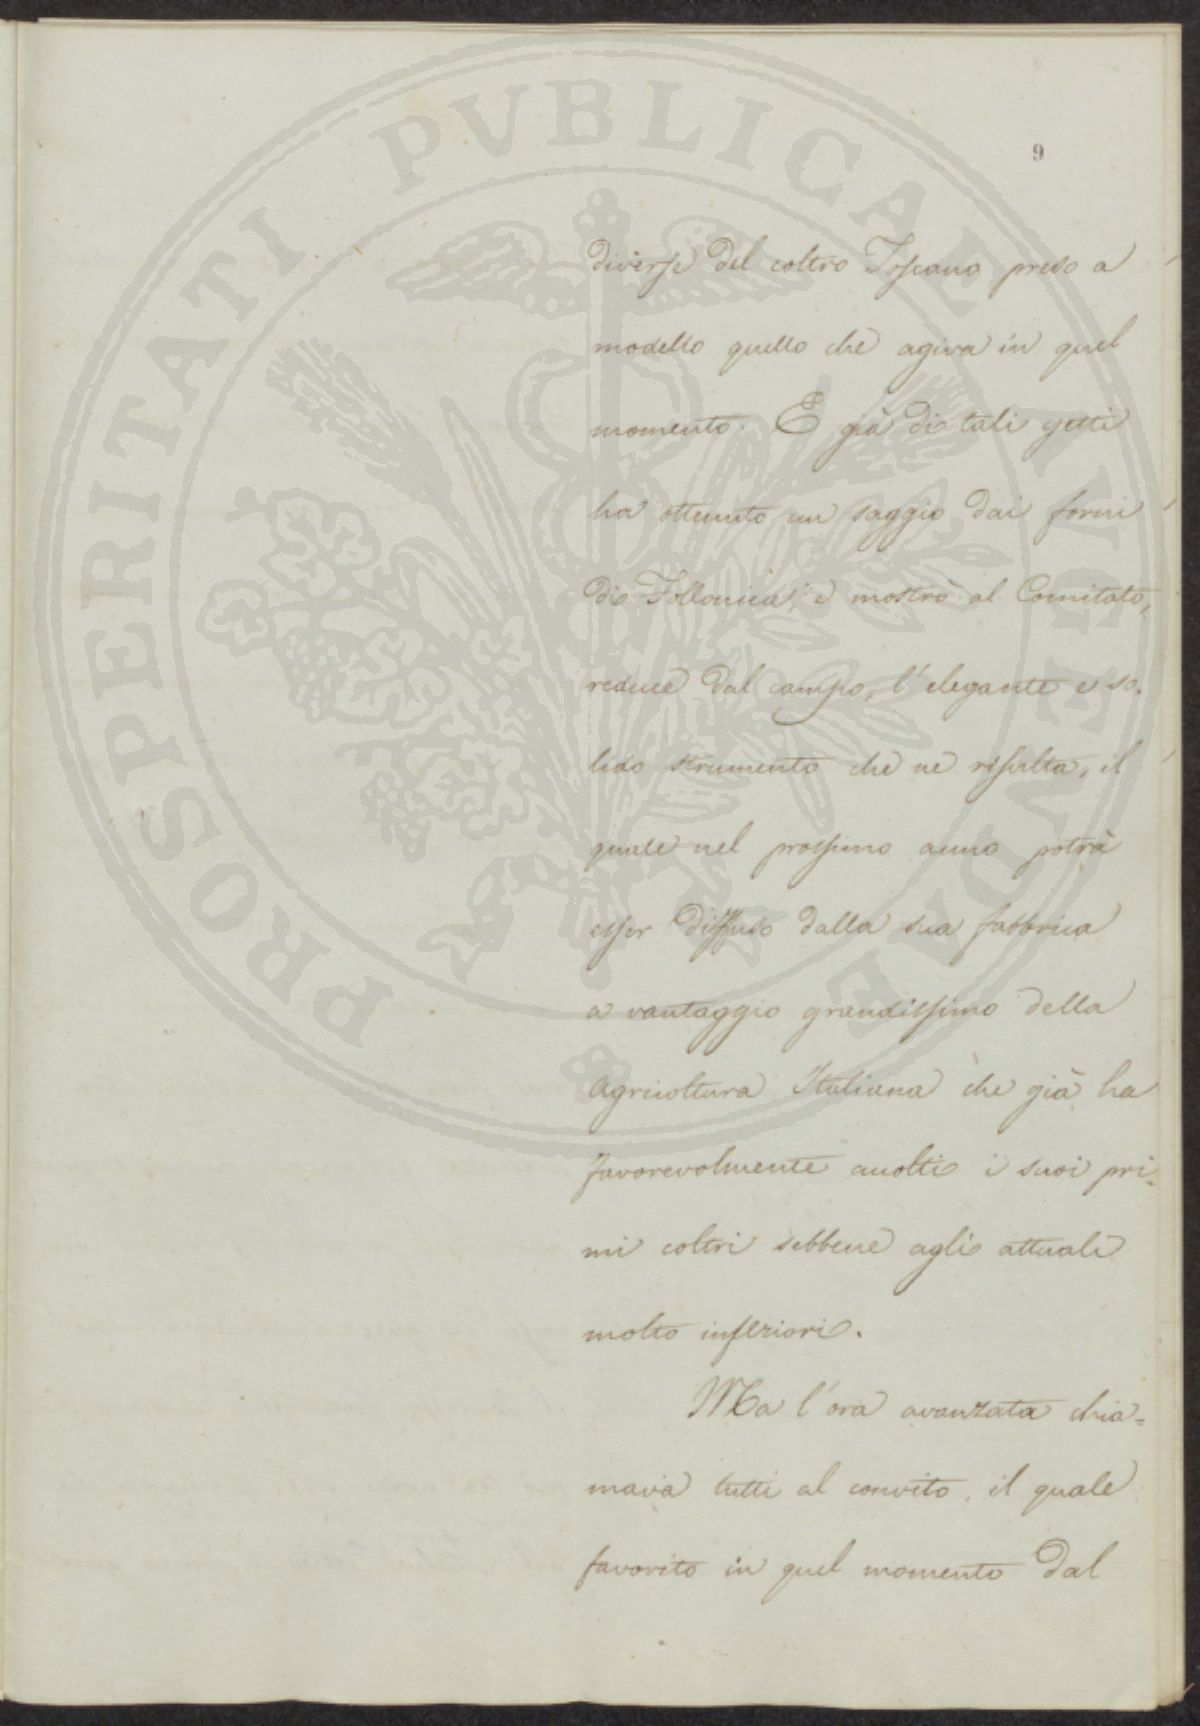 PROSPERITATI PVBLICAE AVGENDAE
9
diverse del coltro Toscano preso a
modello quello che agiva in quel
momento. E già di tali getti
ha ottenuto un saggio dai forni
di Follonica, e mostrò al Comitato,
reduce dal campo, l'elegante e so-
lido strumento che ne risulta, il
quale nel prossimo anno potrà
esser diffuso dalla sua fabbrica
a vantaggio grandissimo della
Agricoltura Italiana che già ha
favorevolmente accolti i suoi pri-
mi coltri sebbene agli attuali
molto inferiori.
Ma l'ora avanzata chia=
mava tutti al convito, il quale
favorito in quel momento dal